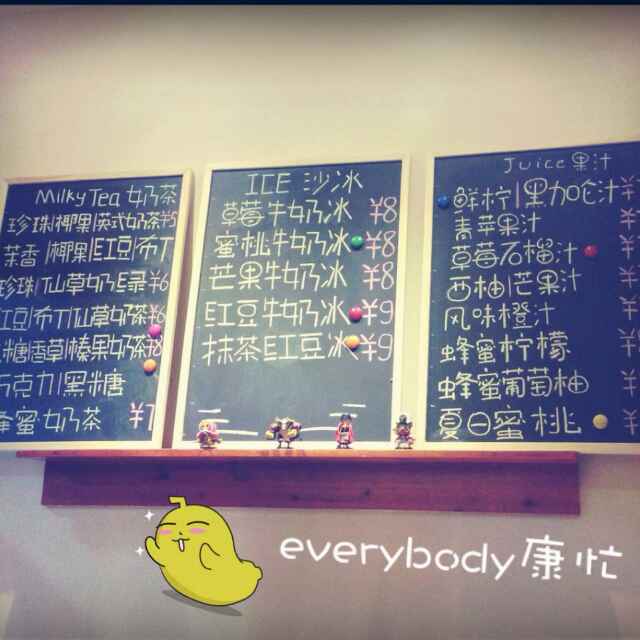 Milky Tea 奶茶
珍珠|椰果|英式奶茶¥5
茉香|椰果|红豆|布丁
珍珠|仙草奶 ¥6
红豆|布丁|仙草奶茶¥6
糖|香草|榛果奶茶¥8
巧克力|黑糖
蜂蜜奶茶 ¥7
ICE 沙冰
草莓牛奶冰 ¥8
蜜桃牛奶冰 ¥8
芒果牛奶冰 ¥8
红豆牛奶冰 ¥9
抹茶红豆冰 ¥9
Juice 果汁
鲜柠|黑加仑汁 ¥
青苹果汁 ¥
草莓石榴汁 ¥
西柚|芒果汁 ¥
风味橙汁 ¥
蜂蜜柠檬 ¥
蜂蜜葡萄柚 ¥
夏日蜜桃 ¥
everybody康忙